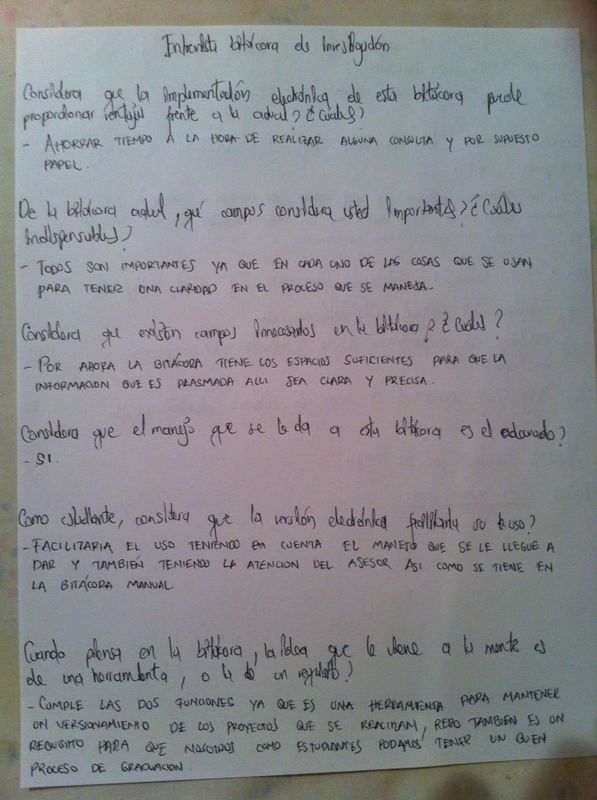 Entrevista bitácora de Investigación
Considera que la implementación electrónica de esta bitácora puede
proporcionar ventajas frente a la actual? ¿Cuáles?
- AHORRAR TIEMPO A LA HORA DE REALIZAR ALGUNA CONSULTA Y POR SUPUESTO
PAPEL.
De la bitácora actual, qué campos considera usted importantes? ¿Cuáles
indispensables?
- TODOS SON IMPORTANTES YA QUE EN CADA UNO DE LAS COSAS QUE SE USAN
PARA TENER UNA CLARIDAD EN EL PROCESO QUE SE MANEJA.
Considera que existen campos innecesarios en la bitácora? ¿Cuáles?
- POR AHORA LA BITÁCORA TIENE LOS ESPACIOS SUFICIENTES PARA QUE LA
INFORMACION QUE ES PLASMADA ALLI SEA CLARA Y PRECISA.
Considera que el manejo que se le da a esta bitácora es el adecuado?
- SI.
Como estudiante, considera que la versión electrónica facilitaría su uso?
- FACILITARIA EL USO TENIENDO EN CUENTA EL MANEJO QUE SE LE LLEGUE A
DAR Y TAMBIEN TENIENDO LA ATENCION DEL ASESOR ASI COMO SE TIENE EN
LA BITÁCORA MANUAL
Cuando piensa en la bitácora, la idea que le viene a la mente es
de una herramienta, o la de un requisito?
- CUMPLE LAS DOS FUNCIONES YA QUE ES UNA HERRAMIENTA PARA MANTENER
UN VERSIONAMIENTO DE LOS PROYECTOS QUE SE REALIZAN, PERO TAMBIEN ES UN
REQUISITO PARA QUE NOSOTROS COMO ESTUDIANTES PODAMOS TENER UN BUEN
PROCESO DE GRADUACION.